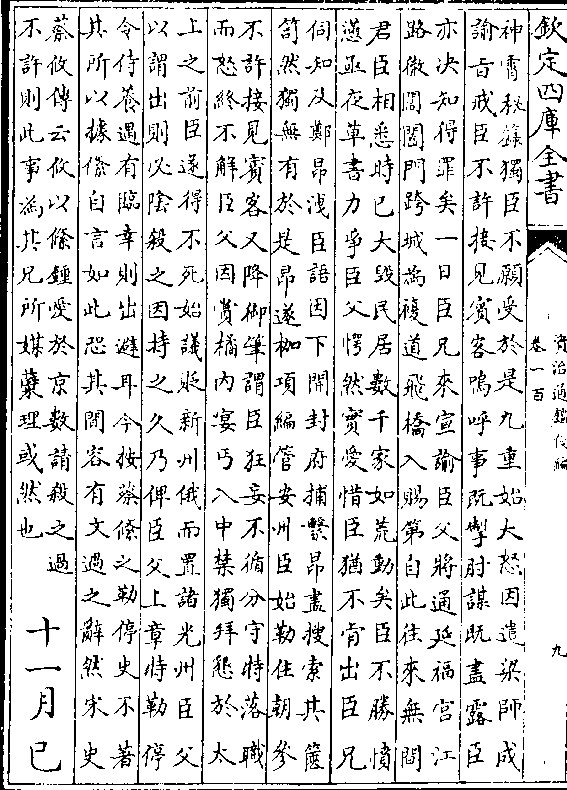 欽定四庫全書
資治通鑑後編
卷一百
九
神霄秘籙獨臣不願受於是九重始大怒因遣梁師成
諭旨戒臣不許接見賓客嗚呼事既掣肘謀既盡露臣
亦决知得罪矣一日臣兄來宣諭臣父將通延福宫江
路微閭闔門跨城為複道飛橋入賜第自此往來無間
君臣相悉時已大毁民居數千家如荒動矣臣不勝憤
懣亟夜草書力爭臣父愕然實愛惜臣猶不肯出臣兄
伺知及鄭昂洩臣語因下開封府捕繫昂盡搜索其篋
笥然獨無有於是昂遂枷項編管安州臣始勒住朝參
不許接見賓客又降御筆謂臣狂妄不循分守特落職
而怒終不解臣父因賞橘内宴丐入中禁獨拜懇於太
上之前臣遂得不死始議貶新州俄而置諸光州臣父
以謂出則必陰殺之因持之久乃俾臣父上章特勒停
令侍養遇有臨幸則出避耳今按蔡絛之勒停史不著
其所以據絛自言如此恐其間容有文過之辭然宋史
蔡攸傳云攸以絛鍾愛於京數請殺之過
不許則此事為其兄所媒糵理或然也
十一月已